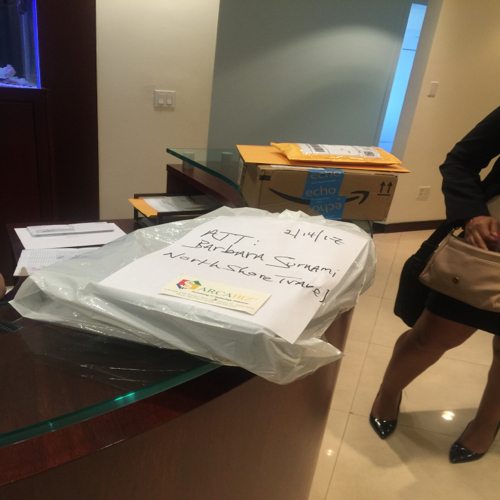 2/14/12
ATT:
Barbara Sernami
North Shore Travel
ARCA
echo
echo
echo